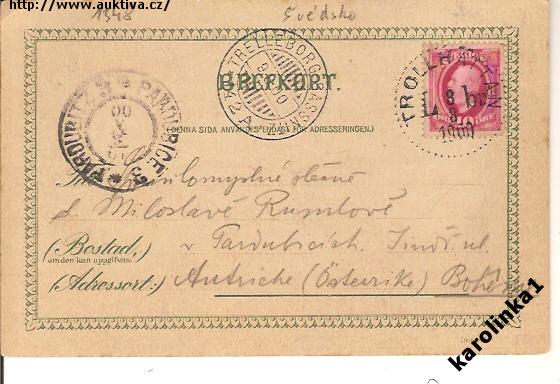 http://www.auktiva.cz/
1348
Švédsko
TRELLEBORG SASSN
BREFKORT.
(DENNA SIDA ANVÄNDES ENDAST FÖR ADRESSERINGEN.)
TROLLHÄTTAN
8
1900
10
PARDUBITZ PARDUBICE 3
Till
sl. Miloslavě
(Bostad,
om den kan uppgifvas)
v Pardubicích. Jindř. ul.
(Adressort:)
Autriche (Österrike)
karolinka1